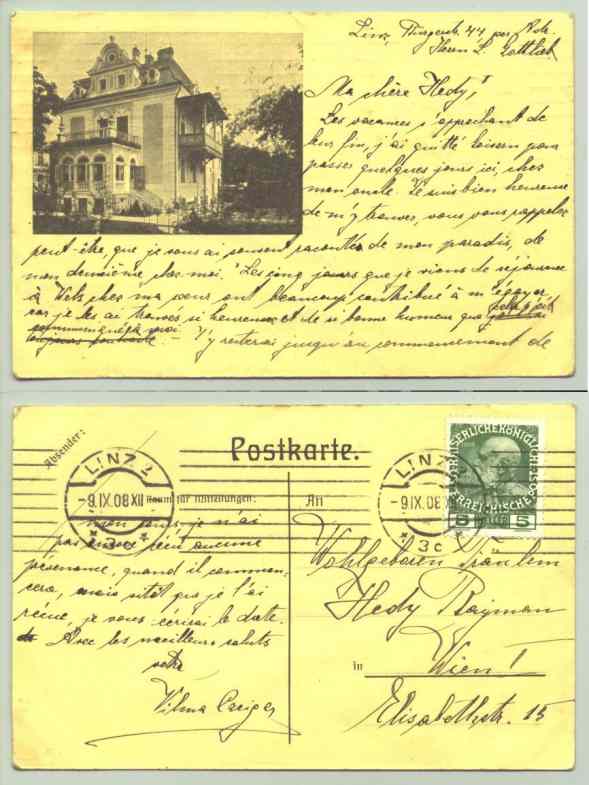 Linz, 44 per Adr.
Herrn L. Gottlieb
Ma chère Hedy!
Les vacances s'approchant de
leur fin, j'ai quitté pour
passer quelques jours ici, chez
mon oncle. Je suis bien heureuse
de m'y trouver, vous vous rappelez
peut-être, que je vous ai souvent racontée de mon paradis, de
mon deuxième chez-moi. Les cinq jours que je viens de séjourner
à Wels chez ma sœur ont beaucoup contribué à m'égayer
car je les ai trouvés si heureux et de si bonne humeur que cela s'est
communiqué à moi. — J'y resterai jusqu'au commencement de
Absender:
Postkarte.
LINZ 2
-9.IX.08 XII
* 3c *
LINZ 2
-9.IX.08 XII
* 3c *
KAISERLICHEKÖNIGLICHE
ÖSTERREICHISCHE POST
5 5
Raum für Mitteilungen:
An
mon cours, je n'ai
pas encore reçu aucune
, quand il commen-
cera, mais sitôt que je l'ai
reçue, je vous écrirai la date.
Avec les meilleurs saluts
votre
Vilma
Wohlgeboren Fräulein
Hedy
in Wien I
Elisabethstr. 15